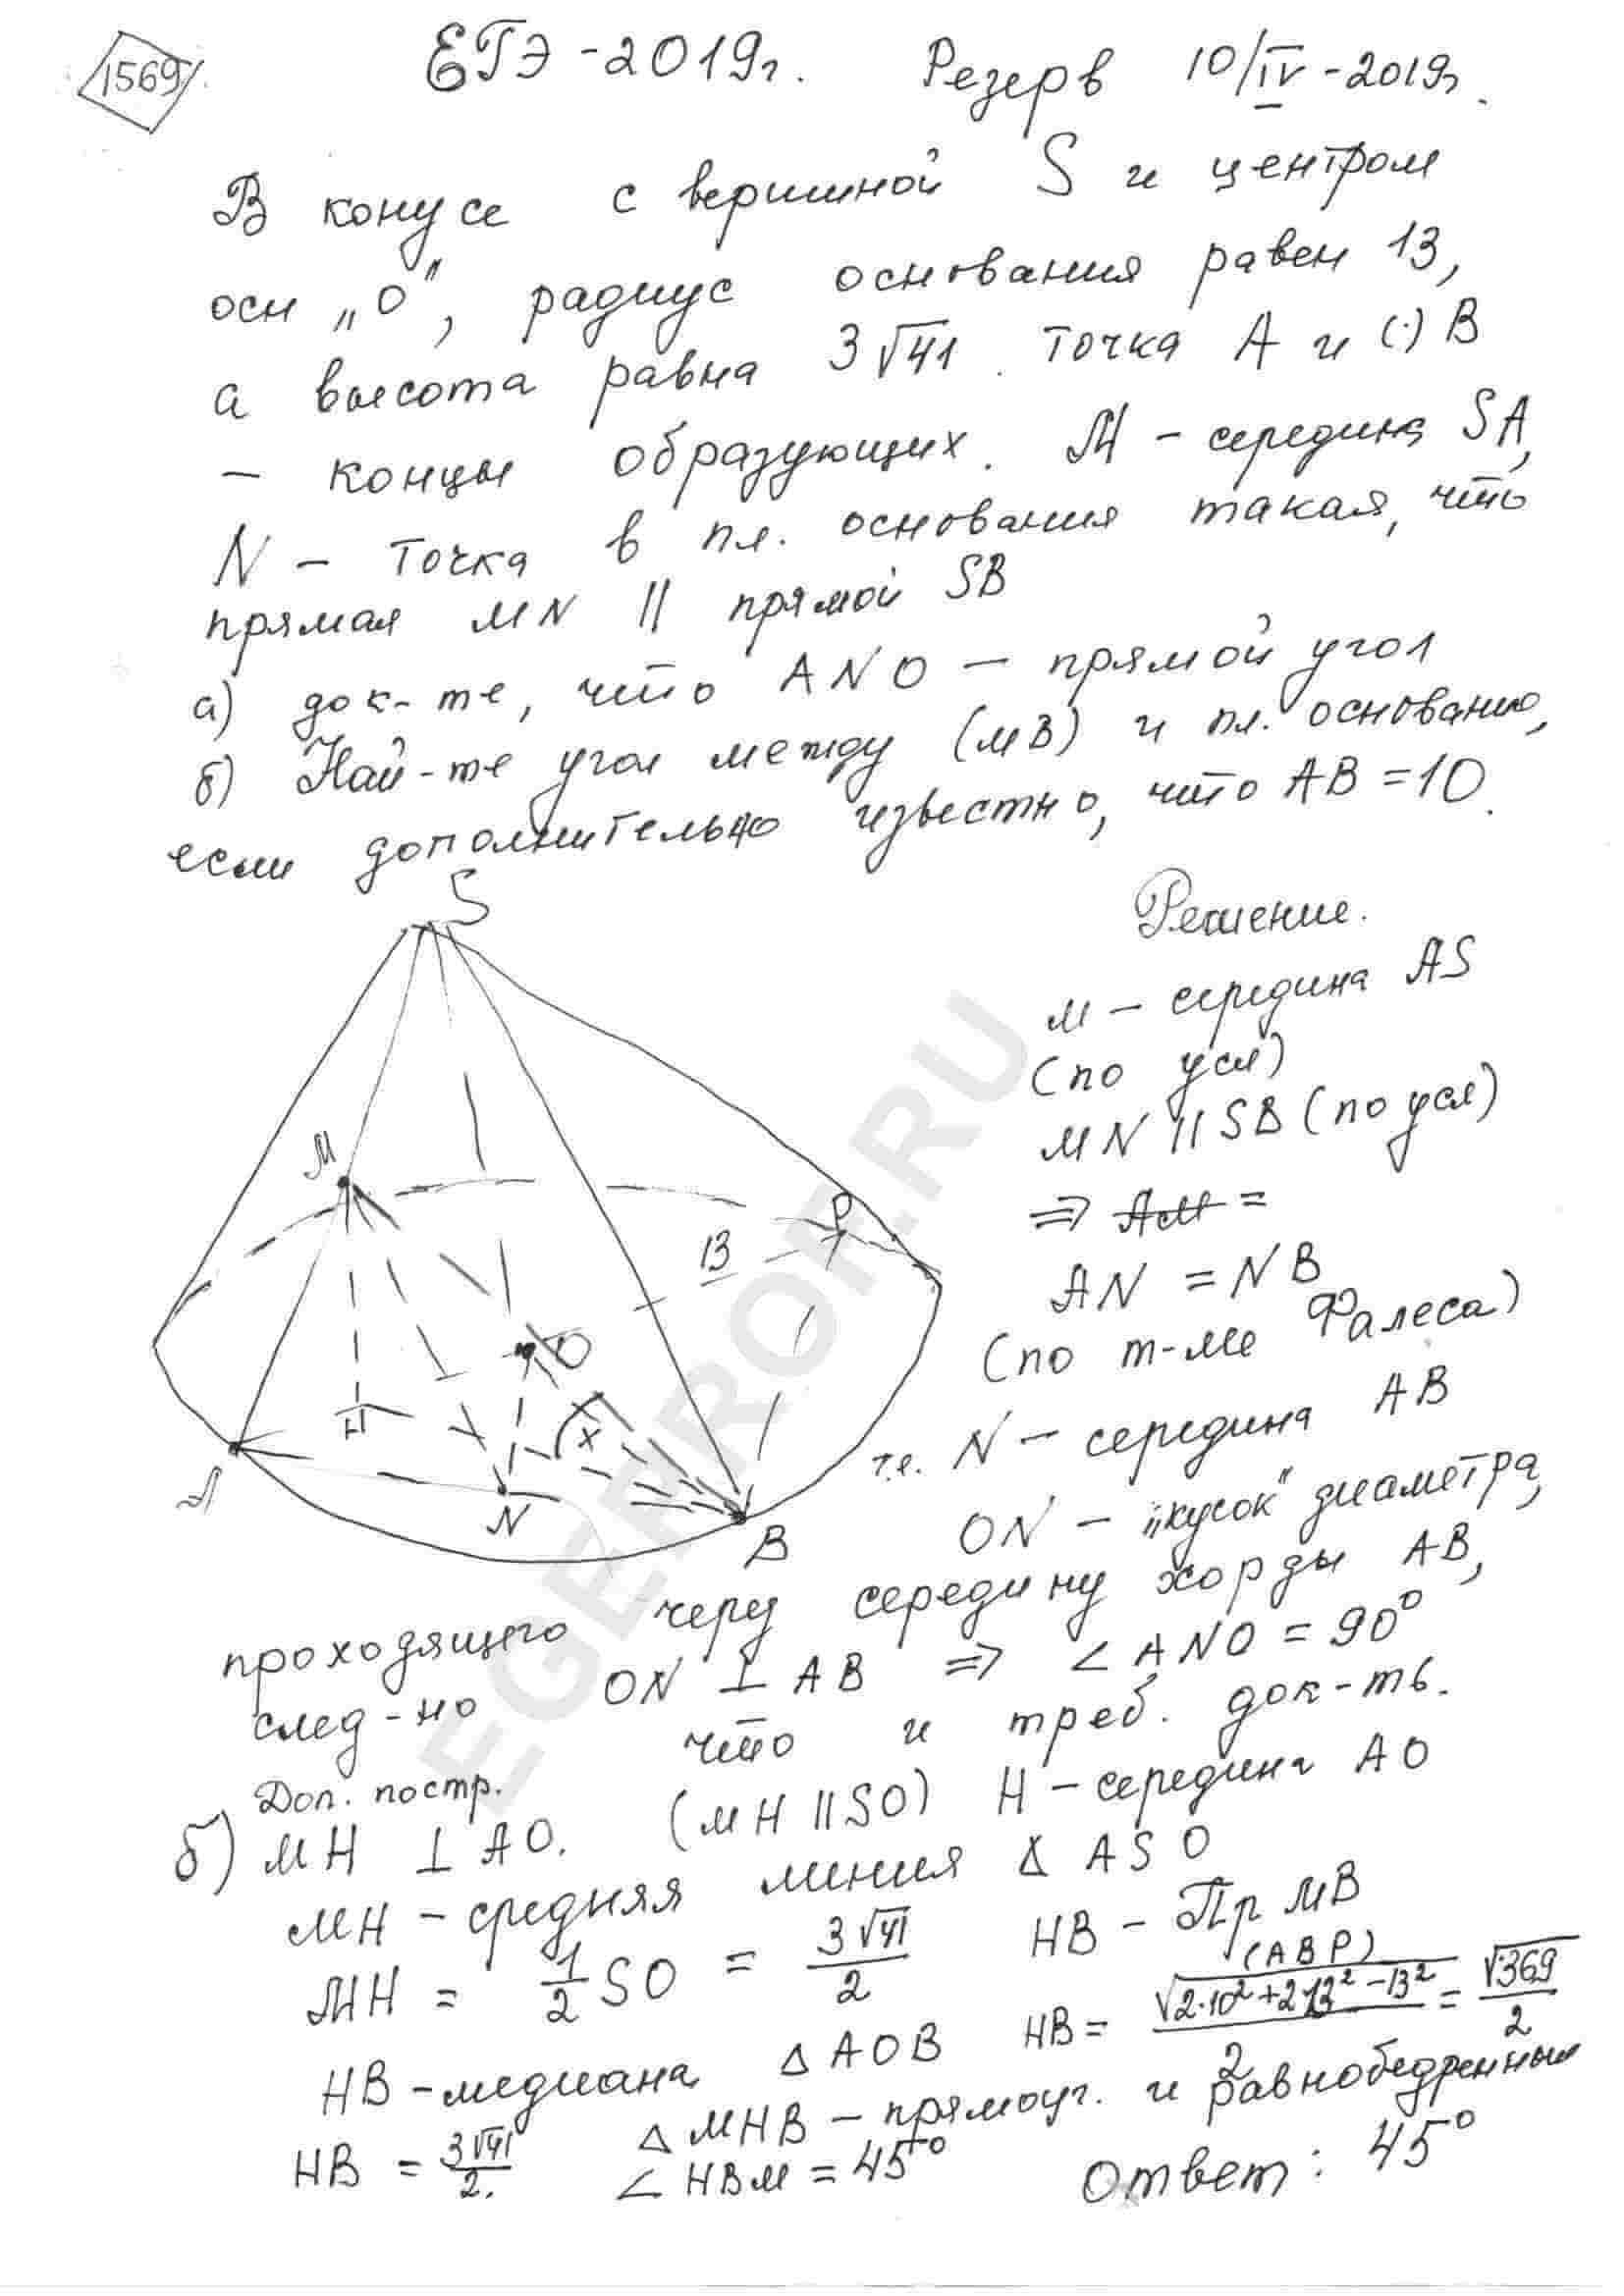 1569
ЕГЭ-2019г. Резерв 10/IV-2019г.
В конусе с вершиной S и центром
осн „О", радиус основания равен 13,
а высота равна 3√41. Точка А и (·) В
— концы образующих. М — середина SA,
N — точка в пл. основания такая, что
прямая MN || прямой SB
а) док-те, что ANO — прямой угол
б) Най-те угол между (МВ) и пл. основания,
если дополнительно известно, что АВ=10.
S
Решение.
М — середина AS
(по усл)
MN || SB (по усл)
⇒ АМ =
AN = NB
(по т-ме Фалеса)
т.е. N — середина АВ
ON — „кусок" диаметра,
M
P
13
O
H
x
A
N
B
проходящего через середину хорды АВ,
след-но ON ⊥ AB ⇒ ∠ANO = 90°
что и треб. док-ть.
Доп. постр.
б) MH ⊥ AO. (MH || SO) H — середина АО
МН — средняя линия Δ ASO
MH = 1/2 SO = 3√41/2 HB — Пр МВ
(АВР)
HB — медиана Δ AOB HB = √2·10²+2·13²-13²/2 = √369/2
HB = 3√41/2. Δ MHB — прямоуг. и равнобедренный
∠ HBM = 45° Ответ: 45°
EGEPROF.RU